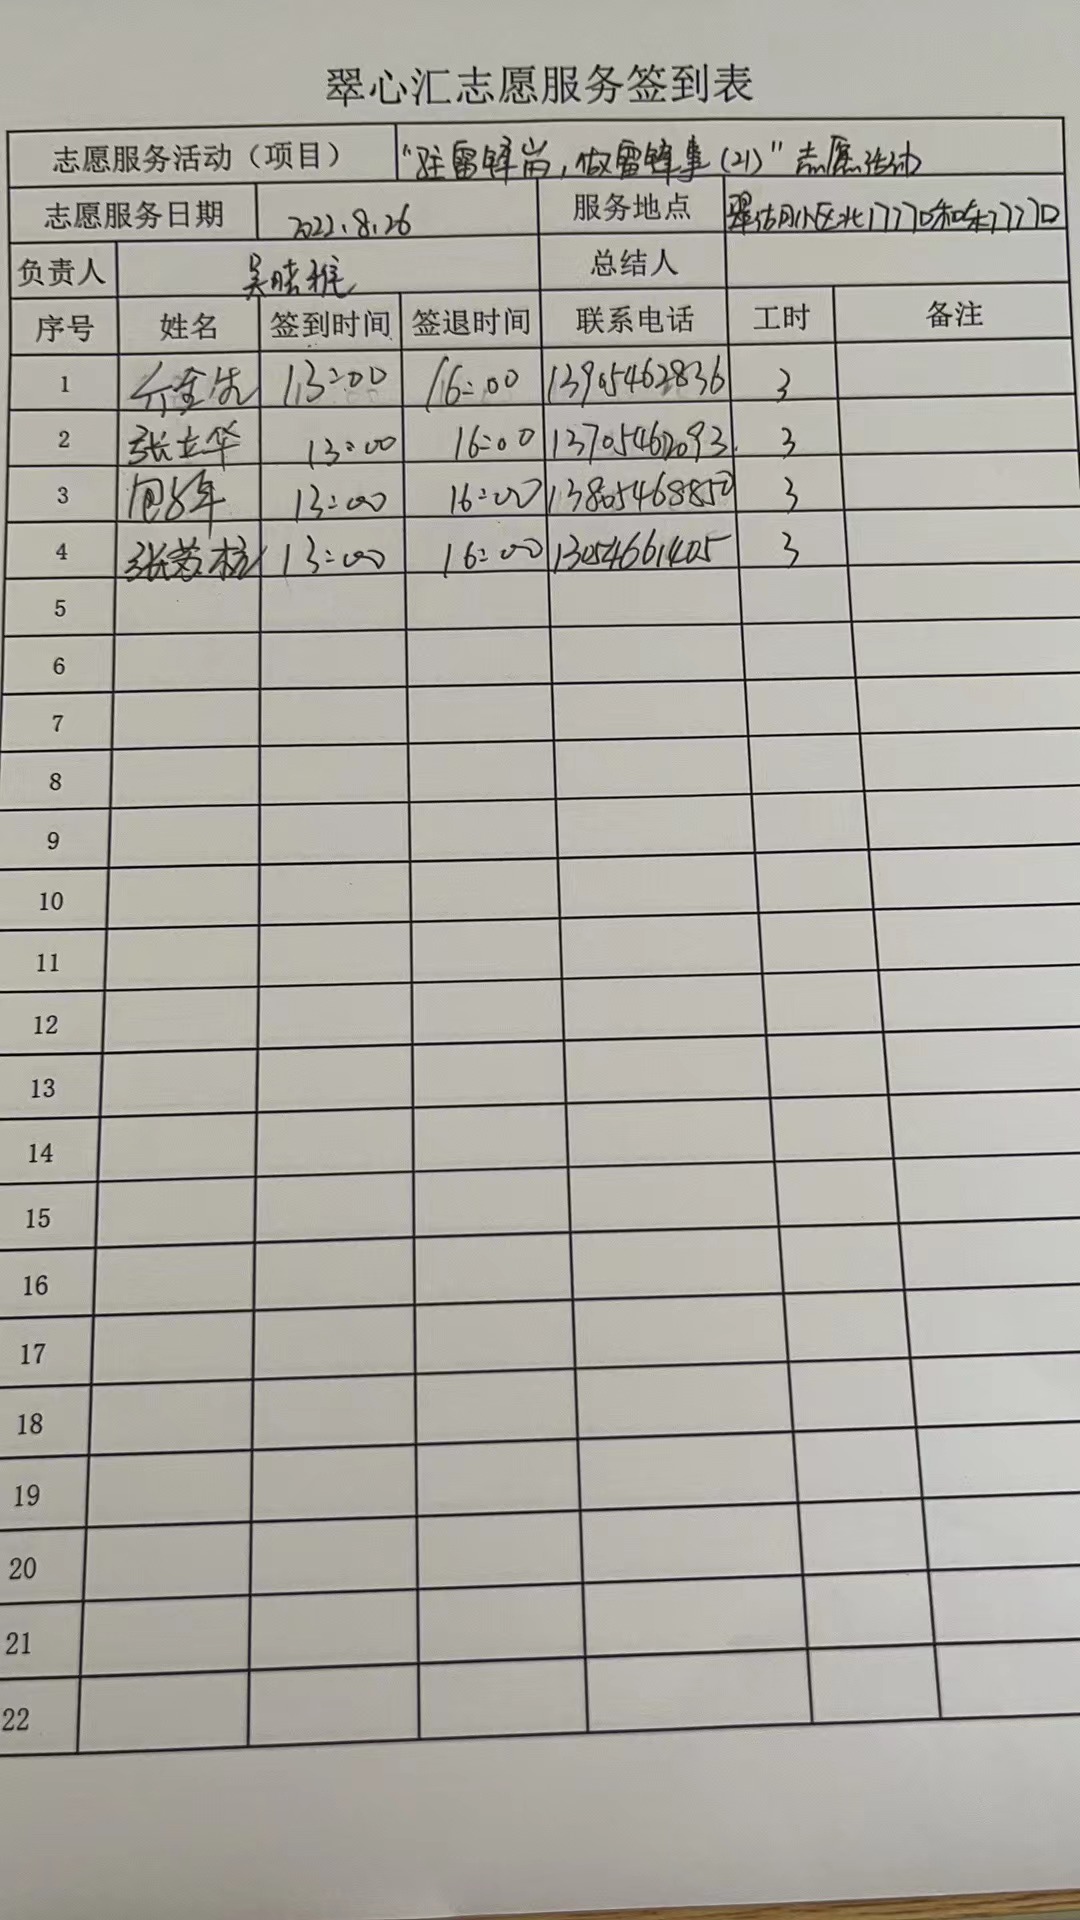 翠心汇志愿服务签到表
志愿服务活动（项目） “驻雷锋岗，做雷锋事（21）”志愿活动
志愿服务日期 2022.8.26 服务地点 小区北门门口和东门门口
负责人 吴晓雅 总结人
序号 姓名 签到时间 签退时间 联系电话 工时 备注
1 13:00 16:00 13905462836 3
2 张立华 13:00 16:00 13705462093 3
3 13:00 16:00 13805468850 3
4 张 13:00 16:00 13054661405 3
5
6
7
8
9
10
11
12
13
14
15
16
17
18
19
20
21
22